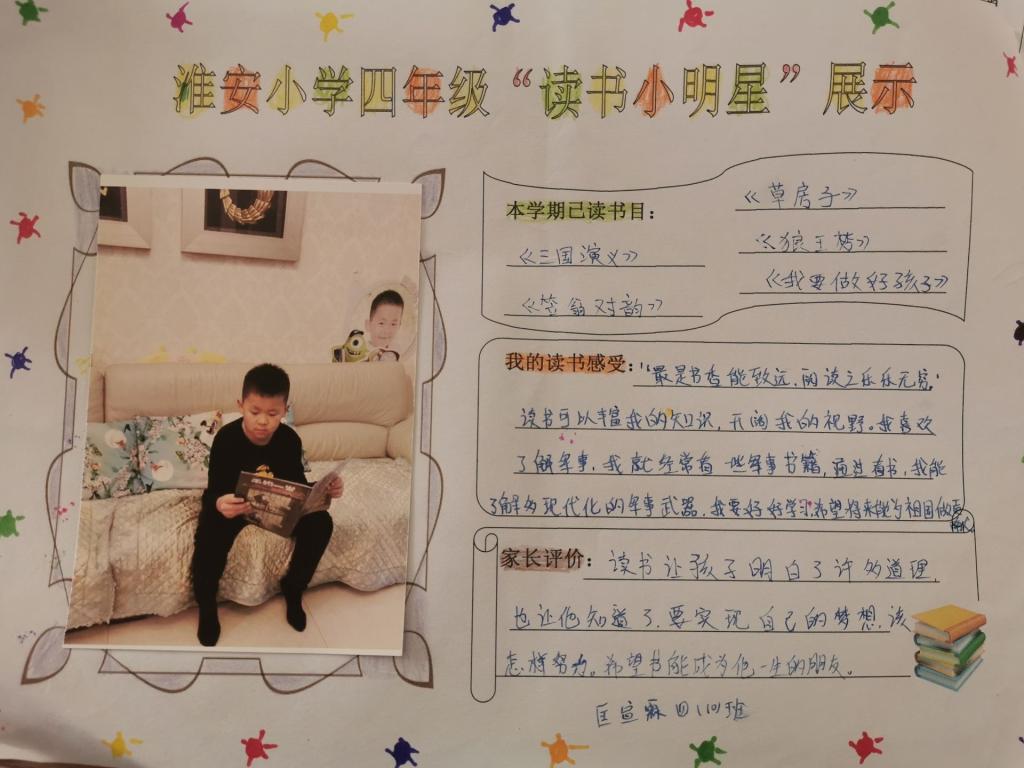 淮安小学四年级“读书小明星”展示
本学期已读书目：
《三国演义》
《笠翁对韵》
《草房子》
《狼王梦》
《我要做好孩子》
我的读书感受：“最是书香能致远，阅读之乐乐无穷”
读书可以丰富我的知识，开阔我的视野。我喜欢
了解军事，我就经常看一些军事书籍，通过看书，我能
了解多现代化的军事武器，我要好好学习希望将来能为祖国做贡献
家长评价：读书让孩子明白了许多道理，
也让他知道了，要实现自己的梦想，该
怎样努力。希望书能成为他一生的朋友。
匡宣霖 四（10）班